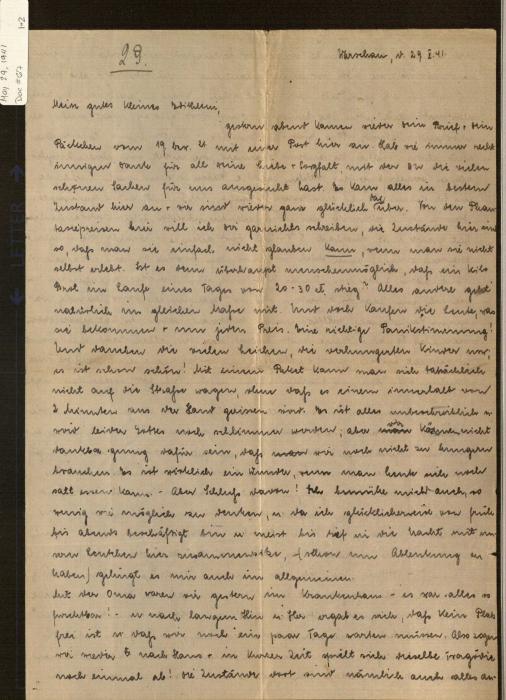 May 29, 1941
Doc #67
1-2
LETTER
29.
Warschau, d. 29. V. 41.
Mein gutes kleines
gestern abend kamen wieder dein Brief + dein
Päckchen vom 19. bzw. 21. mit einer Post hier an. Hab wie immer recht
innigen Dank für all deine Liebe + Sorgfalt, mit der Du die vielen
schönen Sachen für uns ausgesucht hast. Es kam alles in bestem
Zustand hier an + wir sind wieder ganz glücklich darüber. Von den Phan-
tasiepreisen hier will ich dir garnichts schreiben, die Zustände hier sind
so, daß man sie einfach nicht glauben kann, wenn man sie nicht
selbst erlebt. Ist es denn überhaupt menschenmöglich, daß ein Kilo
Brot im Laufe eines Tages von 20-30 zł stieg? Alles andere geht
natürlich im gleichen Maße mit. Und doch kaufen die Leute, was
sie bekommen + um jeden Preis. Eine richtige Panikstimmung!
Und daneben die vielen Leichen, die verhungerten Kinder usw.,
es ist schon schön! Mit einem Paket kann man sich tatsächlich
nicht auf die Straße wagen, ohne daß es einem innerhalb von
2 Minuten aus der Hand gerissen wird. Es ist alles unbeschreiblich u
wird leider Gottes noch schlimmer werden; aber wir können nicht
dankbar genug dafür sein, daß wir noch nicht zu hungern
brauchen. Es ist wirklich ein Wunder, wenn man heute sich noch
satt essen kann. - Aber Schluß davon! Ich bemühe mich auch, so
wenig wie möglich zu denken, u da ich glücklicherweise von früh
bis abends beschäftigt bin u meist bis tief in die Nacht mit un-
seren Leutchen hier zusammensitze, (schon um Ablenkung zu
haben) gelingt es mir auch im allgemeinen.
Mit der Oma waren wir gestern im Krankenhaus - es war alles so
furchtbar! - u nach langem Hin u Her ergab es sich, daß kein Platz
frei ist u daß wir noch ein paar Tage warten müssen. Also zogen
wir wieder nach Haus + in kurzer Zeit spielt sich dieselbe Tragödie
noch einmal ab! Die Zustände dort sind nämlich auch alles an-